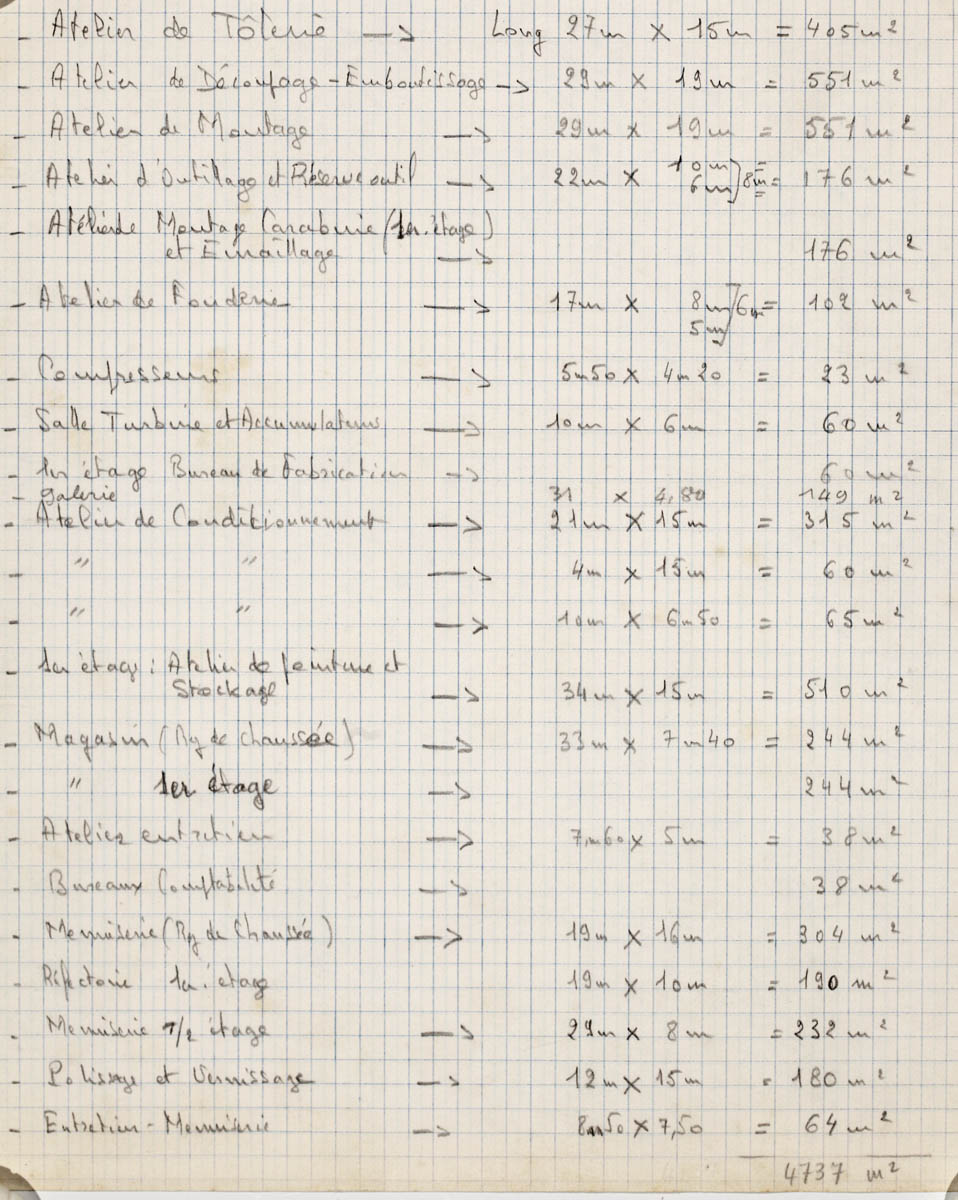 - Atelier de Tôlerie -> Long 27m × 15m = 405 m²
- Atelier de Découpage - Emboutissage -> 29m × 19m = 551 m²
- Atelier de Montage -> 29m × 19m = 551 m²
- Atelier d'Outillage et Réserve outil -> 22m × 10m 6m } 8m = 176 m²
- Atelier de Montage Carabine (1er. étage)
et Emaillage -> 176 m²
- Atelier de Fonderie -> 17m × 8m 5m } 6m = 102 m²
- Compresseurs -> 5m50 × 4m20 = 23 m²
- Salle Turbine et Accumulateurs -> 10m × 6m = 60 m²
- 1er étage Bureau de Fabrication -> 60 m²
- galerie 31 × 4,80 149 m²
- Atelier de Conditionnement -> 21m × 15m = 315 m²
- " " -> 4m × 15m = 60 m²
- " " -> 10m × 6m50 = 65 m²
- 1er étage : Atelier de peinture et
Stockage -> 34m × 15m = 510 m²
- Magasin (Rg de chaussée) -> 33m × 7m40 = 244 m²
- " 1er étage -> 244 m²
- Atelier entretien -> 7m60 × 5m = 38 m²
- Bureaux Comptabilité -> 38 m²
- Menuiserie (Rg de Chaussée) -> 19m × 16m = 304 m²
- Réfectoire 1er. étage 19m × 10m = 190 m²
- Menuiserie 1/2 étage -> 29m × 8m = 232 m²
- Polissage et Vernissage -> 12m × 15m = 180 m²
- Entretien - Menuiserie -> 8m50 × 7,50 = 64 m²
4737 m²